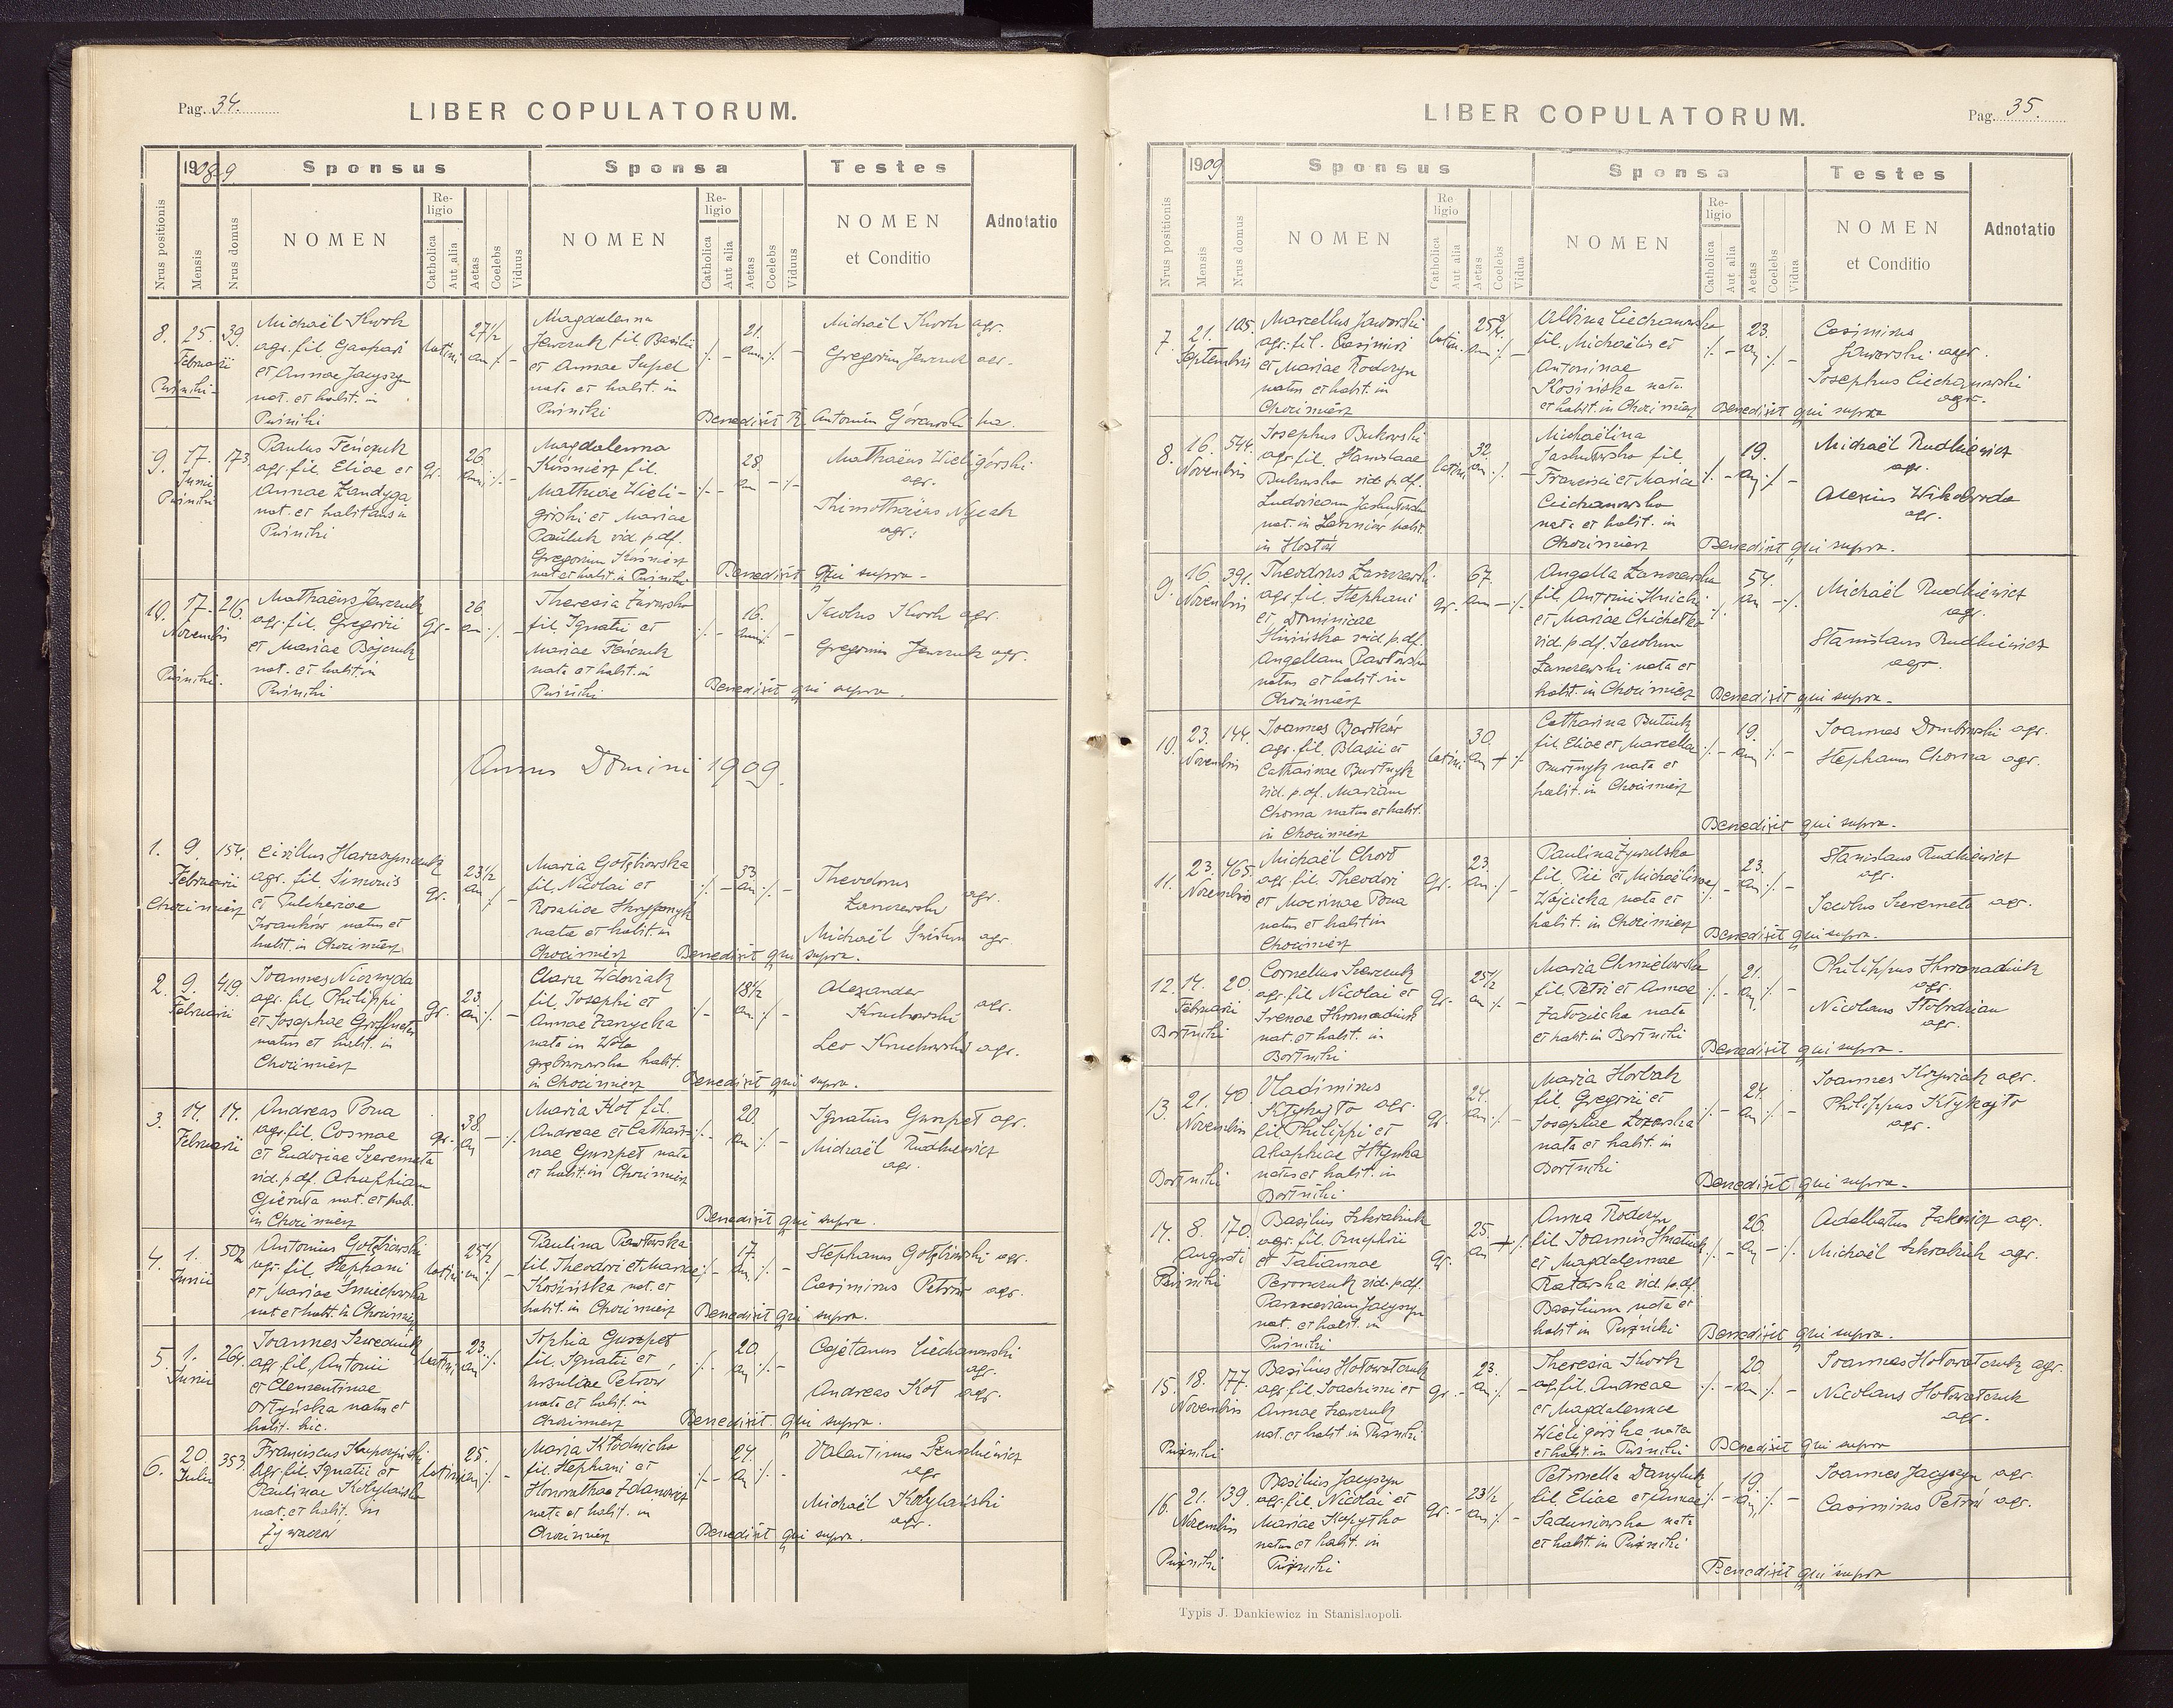 Pag. 34.
LIBER COPULATORUM.
1908-9
Sponsus
Sponsa
Testes
Nrus positionis
Mensis
Nrus domus
NOMEN
Religio
Catholica
Aut alia
Aetas
Coelebs
Viduus
NOMEN
Religio
Catholica
Aut alia
Aetas
Coelebs
Viduus
NOMEN
et Conditio
Adnotatio
8. 25. 39.
Februarii
Puźniki
Michaël Kwok
agr. fil. Gaspari
et Annae Jacyszyn
nat. et habit. in
Puźniki
latin. 27 1/2 an
Magdalenna
Jewczuk fil. Basilii
et Annae Supel
nata et habit. in
Puźniki
21. ann
Michaël Kwok agr.
Gregorius Jewczuk agr.
Benedixit R. Antonius Górawski
9. 17. 173.
Junii
Puźniki
Paulus Feńczuk
agr. fil. Eliae et
Annae Zandyga
nat. et habitans in
Puźniki
gr. 26. ann
Magdalenna
Kuśnierz fil.
Mathiae Wieli-
górski et Mariae
Pauluk vid. p. df.
Gregorium Kuśnierz
nat et habit. in Puźniki
28. an
Mathaëus Wieligórski
agr.
Thimothaëus Nycak
agr.
Benedixit Qui supra -
10. 17. 216.
Novembris
Puźniki.
Mathaëus Jewczuk
agr. fil. Gregorii
et Mariae Bojczuk
nat. et habit. in
Puźniki
gr - 26. an
Theresia Żurowska
fil. Ignatii et
Mariae Feńczuk
nata et habit. in
Puźniki
16. ann
Jacobus Kwok agr.
Gregorius Jewczuk agr.
Benedixit qui supra.
Annus Domini 1909.
1. 9. 154.
Februarii
Chocimierz
Cirillus Harasymczuk
agr. fil. Simonis
et Pulcheriae
Iwanków natus et
habit. in Chocimierz
gr. 23 1/2 an
Maria Gołębiowska
fil. Nicolai et
Rosaliae Hryponyk
nata et habit. in
Chocimierz
33 an
Theodorus
Łanczewski agr.
Michaël agr.
Benedixit qui supra.
2. 9. 419.
Februarii
Joannes Niczwyda
agr. fil. Philippi
et Josephae
natus et habit. in
Chocimierz
gr. 23. an
Clara Wdowiak
fil. Josephi et
Annae Zarycka
nata in Wola
habit.
in Chocimierz
18 1/2 an.
Alexander
Kruchowski agr.
Leo Kruchowski agr.
Benedixit qui supra.
3. 14. 14.
Februarii
Andreas Pona
agr. fil. Cosmae
et Eudoxiae Szeremeta
vid. p. df. Ahaphiam
Gieruta nat. et hab.
in Chocimierz
gr. 38. an
Maria Kot fil.
Andreae et Cathari-
nae Guszpet nata
et habit. in Chocimierz
20. an
Ignatius Guszpet agr.
Michaël Rudkiewicz
agr.
Benedixit qui supra.
4. 1. 502
Junii
Antonius Gołębiowski
agr. fil. Stephani
et Mariae Smiechowska
nat et habit. in Chocimierz
latin. 25 1/2 an
Paulina Pawłowska
fil Theodori et Mariae
Kosińska nat. et
habit. in Chocimierz
17. an.
Stephanus Gołębiowski agr.
Casimirus Petrów agr.
Benedixit qui supra.
5. 1. 264.
Junii
Joannes Szwedniuk
agr. fil. Antonii
et Clementinae
Ortyńska natus et
habit. hic.
latin. 23. an
Sophia Guszpet
fil. Ignatii et
Ursulae Petrów
nata et habit. in
Chocimierz
20. an
Cajetanus Ciechanowski
agr.
Andreas Kot agr.
Benedixit. qui supra.
6. 20. 353.
Julii
Franciscus
agr. fil. Ignatii et
Paulinae Kobylańska
nat. et habit. in
Żywaczów
latin. 25. an
Maria Kłodnicka
fil. Stephani et
Honorathae Zdanowicz
nata et habit. in
Chocimierz
24. an
Valentinus
agr
Michaël Kobylański
agr.
Benedixit qui supra.
LIBER COPULATORUM.
Pag. 35.
1909
Sponsus
Sponsa
Testes
Nrus positionis
Mensis
Nrus domus
NOMEN
Religio
Catholica
Aut alia
Aetas
Coelebs
Vidua
NOMEN
Religio
Catholica
Aut alia
Aetas
Coelebs
Vidua
NOMEN
et Conditio
Adnotatio
7. 21. 105.
Septembris
Marcellus Jaworski
agr. fil. Casimiri
et Mariae Roderyn
natus et habit. in
Chocimierz
latin. 25 3/4 an
Albina Ciechanowska
fil. Michaëlis et
Antoninae
Kosińska nata
et habit. in Chocimierz
23. an
Casimirus
Jaworski agr.
Josephus Ciechanowski
agr.
Benedixit qui supra
8. 16. 544.
Novembris
Josephus Bukowski
agr. fil. Stanislaae
Bukowska vid. p. df.
Ludovicam
nat. in habit.
in Hostów
latin. 32. an
Michaëlina
fil
Francisci et Mariae
Ciechanowska
nata et habit. in
Chocimierz
19. an
Michaël Rudkiewicz
agr.
Alexius
agr.
Benedixit qui supra.
9. 16. 391.
Novembris
Theodorus Łanczewski
agr. fil. Stephani
et Dominicae
vid. p. df.
Angellam Pawłowska
natus et habit in
Chocimierz
gr. 67. an
Angella Łanczewska
fil. Antonii
et Mariae
vid. p. df. Jacobum
Łanczewski nata et
habit. in Chocimierz
54. an
Michaël Rudkiewicz
agr.
Stanislaus Rudkiewicz
agr.
Benedixit qui supra.
10. 23. 144.
Novembris
Joannes Bartków
agr. fil. Blasii et
Catharinae Burtnyk
vid. p. df. Mariam
Choma natus et habit.
in Chocimierz
latin. 30. an
Catharina Butiuk
fil. Eliae et Marcella
Burtnyk nata et
habit. in Chocimierz
19. an
Joannes Dombrowski agr.
Stephanus Choma agr.
Benedixit qui supra.
11. 23. 465.
Novembris
Michaël Chort
agr. fil. Theodori
et Pona
natus et habit in
Chocimierz
gr. 23. an.
Paulina Żywulska
fil. Pii et Michaëlinae
Wójcicka nata et
habit. in Chocimierz
23. an
Stanislaus Rudkiewicz
agr.
Jacobus Szeremeta agr.
Benedixit qui supra.
12. 14. 20.
Februarii
Bortniki
Cornelius Szewczuk
agr. fil. Nicolai et
Irenae Hromadiuk
nat. et habit. in
Bortniki
gr. 25 1/2 an
Maria Chmielowska
fil. Petri et Annae
Załoziecka nata
et habit. in Bortniki
21. an
Philippus Hromadiuk
agr.
Nicolaus
agr.
Benedixit qui supra.
13. 21. 40
Novembris
Bortniki
Vladimirus
Kłykajło agr.
fil. Philippi et
Ahaphiae
natus et habit. in
Bortniki
gr. 24. an
Maria Horbak
fil. Gregorii et
Josephae Łozowska
nata et habit. in
Bortniki
24. an
Joannes Krzywiak agr.
Philippus Kłykajło
agr.
Benedixit qui supra.
14. 8. 170.
Augusti
Puźniki
Basilius Szkrabiuk
agr. fil. Onuphrii
et Tatiannae
vid. p. df.
Parasceviam Jacyszyn
nat. et habit. in
Puźniki
gr. 25. an
Anna Roderyn
fil Joannis Hnatiuk
et Magdalennae
Ratowska vid. p. df.
Basilium nata et
habit in Puźniki
26. an
Adalbertus agr.
Michaël Szkrabiuk agr.
Benedixit qui supra.
15. 18. 77
Novembris
Puźniki
Basilius Hołowatczuk
agr. fil. Joachimi et
Annae Szewczuk
nat. et habit in Puźniki
gr. 23. an
Theresia Kwok
agr. fil. Andreae
et Magdalennae
Wieligórska nata
et habit. in Puźniki
20. an
Joannes Hołowatczuk agr.
Nicolaus Hołowatczuk
agr.
Benedixit qui supra
16. 21. 39.
Novembris
Puźniki
Basilius Jacyszyn
agr. fil. Nicolai et
Mariae Kopytko
natus et habit. in
Puźniki
gr. 23 1/2 an
Petronella Danyluk
fil. Eliae et Annae
Saduniowska nata
et habit. in Puźniki
19. an
Joannes Jacyszyn agr.
Casimirus Petrów agr.
Benedixit qui supra
Typis J. Dankiewicz in Stanislaopoli.